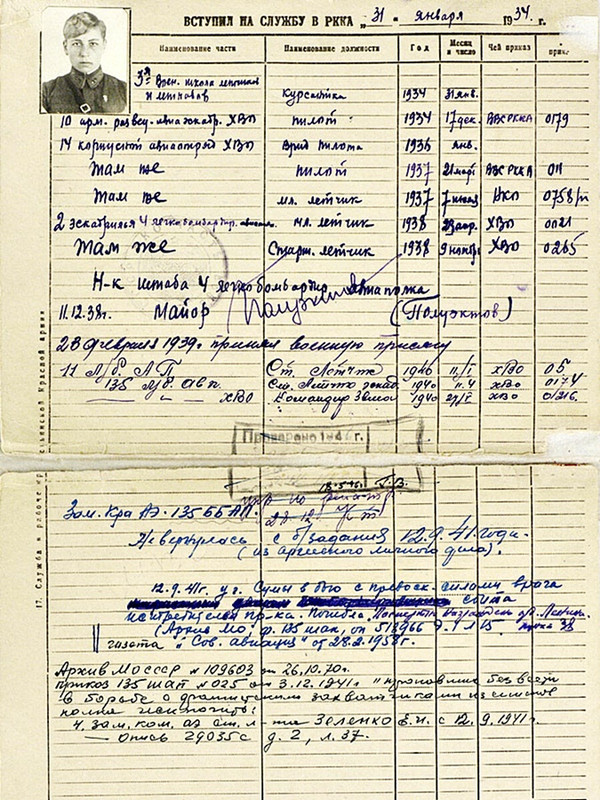 ВСТУПИЛ НА СЛУЖБУ В РККА „31" января 1934. г.
Наименование части Наименование должности Год Месяц и число Чей приказ
3я Воен. школа летчиков и летнабов курсантка 1934 31 янв.
10 арм. развед. авиаэскадр. ХВО пилот 1934 17 дек. ВВС РККА 0179
14 корпусной авиаотряд ХВО Врид пилота 1936 янв.
Там же пилот 1937 21 март ВВС РККА 011
Там же мл. летчик 1937 7 НКО 0758/п
2 эскадрилья 4 легкобомбардир. мл. летчик 1938 ХВО 0021
Там же Старш. летчик 1938 9 ноябр ХВО 0265
Н-к штаба 4 легкобомбардир авиаполка
11.12.38г. Майор (Полуэктов)
23 февраля 1939г принял военную присягу
11 Л/Б. АП Ст. Летчик 1940 11/I ХВО 05
135 Л/Б авп. 1940 11.4 ХВО 0174
— „ — ХВО Командир Звена 1940 27/V ХВО 0/216.
Проверено 194 г.
Зам. К-ра АЭ. 135 ББАП.
28-12
Не вернулась с б/задания 12.9.41 года.
(из архивного личного дела).
12.9.41г у г. Сумы в бою с превосх. силами врага
сбита
истребителем пр-ка. Погибла.
(Архив МО ф. 135 шап, оп 518966 д. 1 л 15
газета "Сов. авиация" от 28.2.1958г.
Архив МО СССР № 109603 от 26.10.70г.
приказ 135 шап № 025 от 3.12.1941г "пропавших без вести
в борьбе с фашистскими захватчиками из списков
полка исключить:
4. Зам. ком. АЭ ст. л-та Зеленко Е.И. с 12.9.1941г.
— Опись 29035с д. 2, л. 37.
17. Служба в рабоче-крестьянской Красной армии